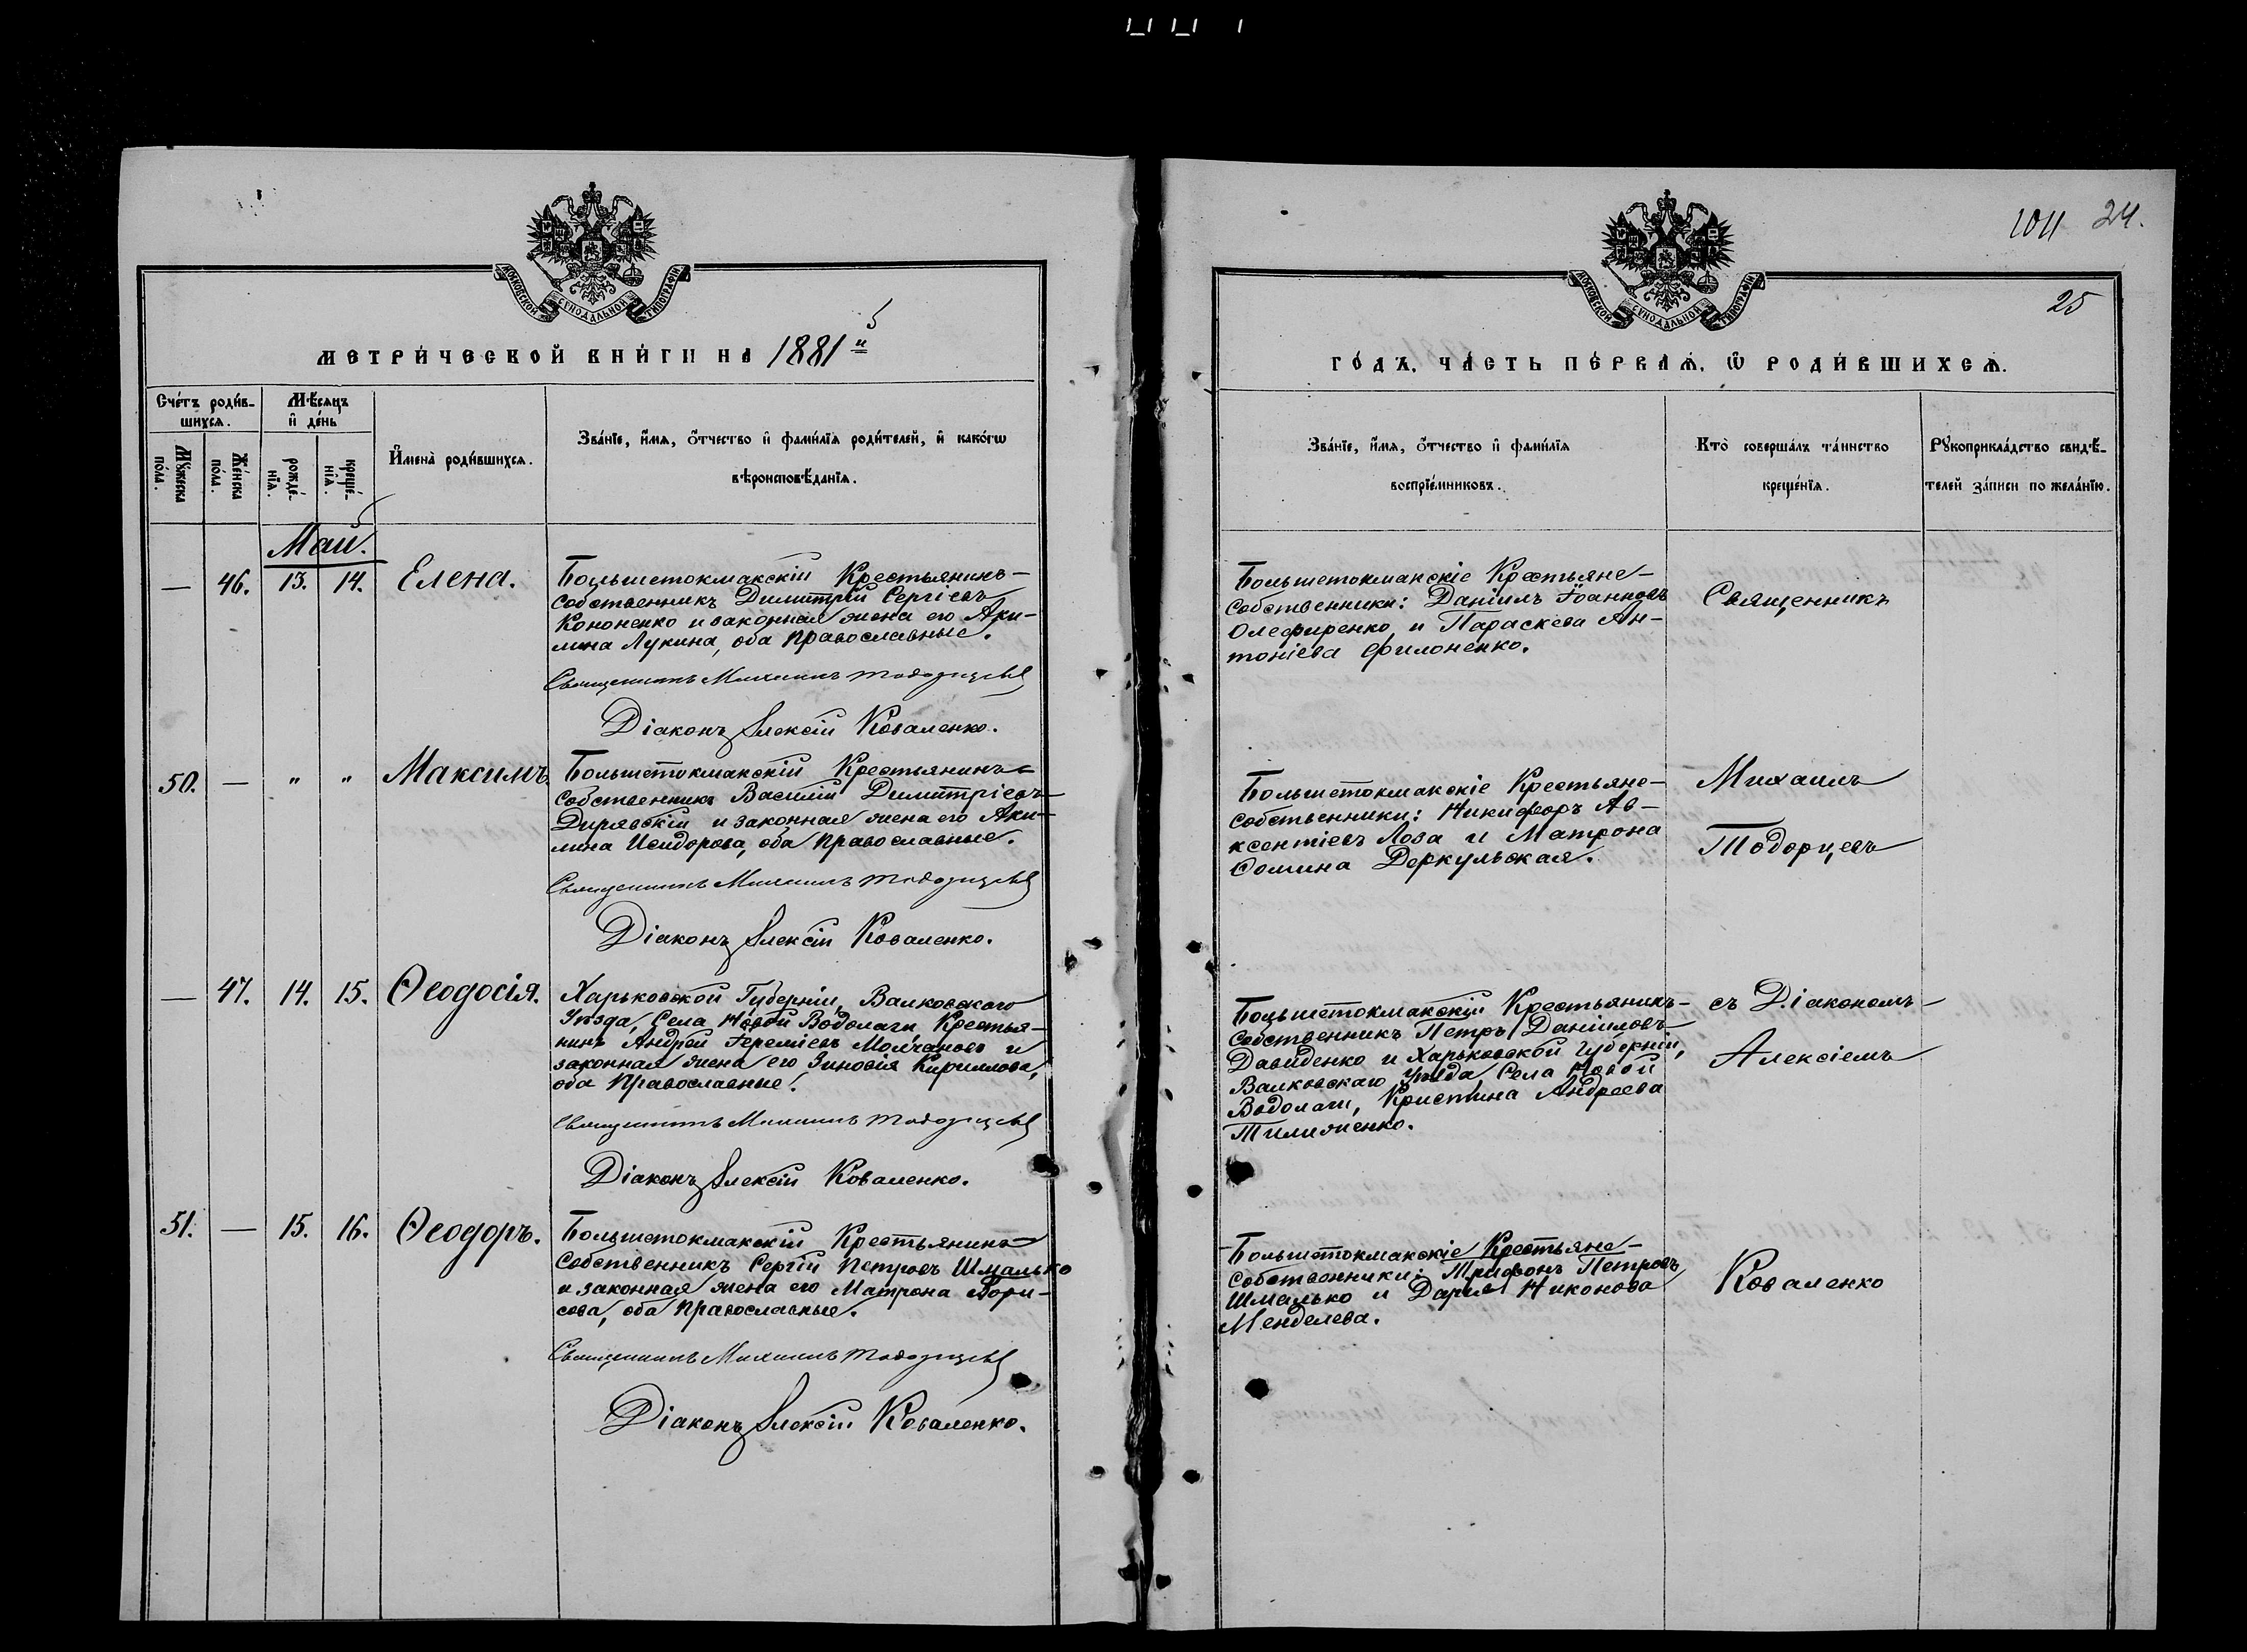 МОСКОВСКОЙ СѴНОДАЛЬНОЙ ТИПОГРАФІИ
МЕТРИ́ЧЕСКОЙ КНИ́ГИ НА 1881й
Сче́тъ роди́в-
шихсѧ.
Мѣ́сѧцъ
и҆ де́нь
Мꙋ́жеска
по́ла.
Же́нска
по́ла.
рожде́-
нїѧ.
креще́-
нїѧ.
И҆мена̀ роди́вшихсѧ.
Зва́нїе, и҆́мѧ, ѻ҆́тчество и҆ фами́лїѧ роди́телей, и҆ како́гѡ
вѣроисповѣ́данїѧ.
Май.
— 46. 13. 14. Елена.
Большетокмакскій Крестьянинъ-
собственникъ Димитрій Сергіевъ
Кононенко и законная жена его Аки-
лина Лукина, оба православные.
Священникъ Михаилъ Тодорцевъ
Діаконъ Алексій Коваленко.
50. — " " Максимъ
Большетокмакскій Крестьянинъ-
собственникъ Василій Димитріевъ
Дирявскій и законная жена его Аки-
лина Исидорова, оба православные.
Священникъ Михаилъ Тодорцевъ
Діаконъ Алексій Коваленко.
— 47. 14. 15. Ѳеодосія.
Харьковской Губерніи, Валковскаго
Уѣзда, Села Новой Водолаги Крестья-
нинъ Андрей Іереміевъ Молчановъ и
законная жена его Зиновія Кириллова,
оба Православные.
Священникъ Михаилъ Тодорцевъ
Діаконъ Алексій Коваленко.
51. — 15. 16. Ѳеодоръ.
Большетокмакскій Крестьянинъ
Собственникъ Сергій Петровъ Шмалько
и законная жена его Матрона Бори-
сова, оба православные.
Священникъ Михаилъ Тодорцевъ
Діаконъ Алексій Коваленко.
1011 24.
МОСКОВСКОЙ СѴНОДАЛЬНОЙ ТИПОГРАФІИ
25
ГО́ДЪ, ЧА́СТЬ ПЕ́РВАѦ, Ѽ РОДИ́ВШИХСѦ.
Зва́нїе, и҆́мѧ, ѻ҆́тчество и҆ фами́лїѧ
воспрїе́мниковъ.
Кто̀ соверша́лъ та́инство
креще́нїѧ.
Рꙋкоприкла́дство свидѣ́-
телей за́писи по жела́нїю.
Большетокмакскіе Крестьяне-
собственники: Даніилъ Іоанновъ
Олефиренко и Параскева Ан-
тоніева Филоненко.
Священникъ
Большетокмакскіе Крестьяне-
собственники: Никифоръ Ав-
ксентіевъ Лоза и Матрона
Фомина Деркульская.
Михаилъ
Тодорцевъ
Большетокмакскій Крестьянинъ-
Собственникъ Петръ Даніиловъ
Давиденко и Харьковской Губерніи,
Валковскаго уѣзда, Села Новой
Водолаги, Кристина Андреева
Тилиженко.
съ Діакономъ
Алексіемъ
Большетокмакскіе Крестьяне-
собственники: Трифонъ Петровъ
Шмалько и Дарія Никонова
Менделева.
Коваленко